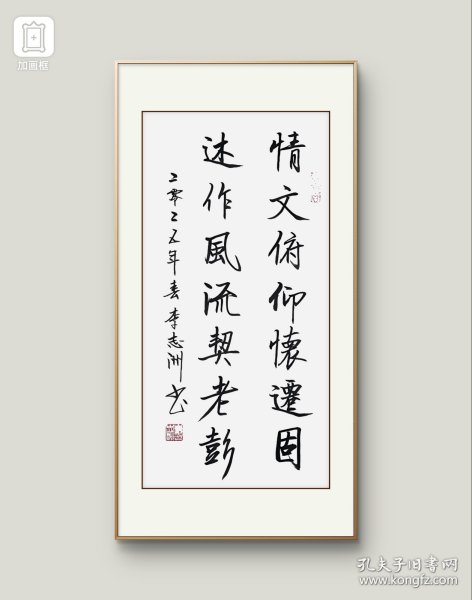 加画框
情文俯仰懷遷固
述作風流契老彭
二零二五年春李志洲书
孔夫子旧书网
www.kongfz.com